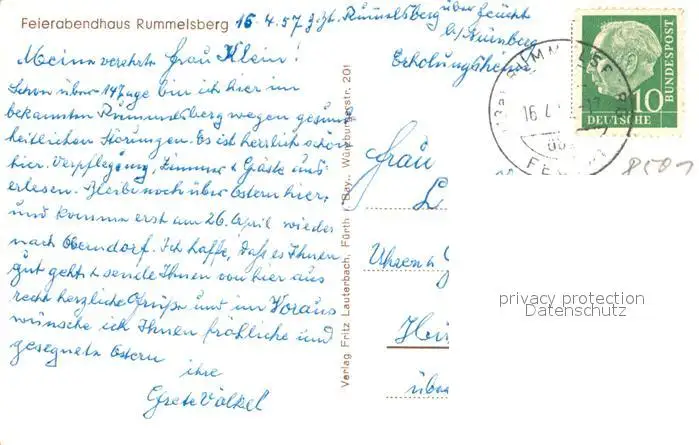 Feierabendhaus Rummelsberg
16.4.57 z.Zt. Rummelsberg über Feucht
b/ Nürnberg
Erholungsheim.
Meine verehrte Frau Klein!
Schon über 14 Tage bin ich hier im
bekannten Rummelsberg wegen gesund-
heitlichen Störungen. Es ist herrlich schön
hier. Verpflegung, Zimmer & Gäste aus-
erlesen. Bleibe noch über Ostern hier,
und komme erst am 26. April wieder
nach Oberndorf. Ich hoffe, daß es Ihnen
gut geht & sende Ihnen von hier aus
recht herzliche Grüße und im Voraus
wünsche ich Ihnen fröhliche und
gesegnete Ostern
ihre
Grete Völkel
Verlag Fritz Lauterbach, Fürth / Bay., Würzburgerstr. 201
DEUTSCHE
BUNDESPOST
10
16.4.
8501
Frau
Uhren &
Hei
über
privacy protection
Datenschutz